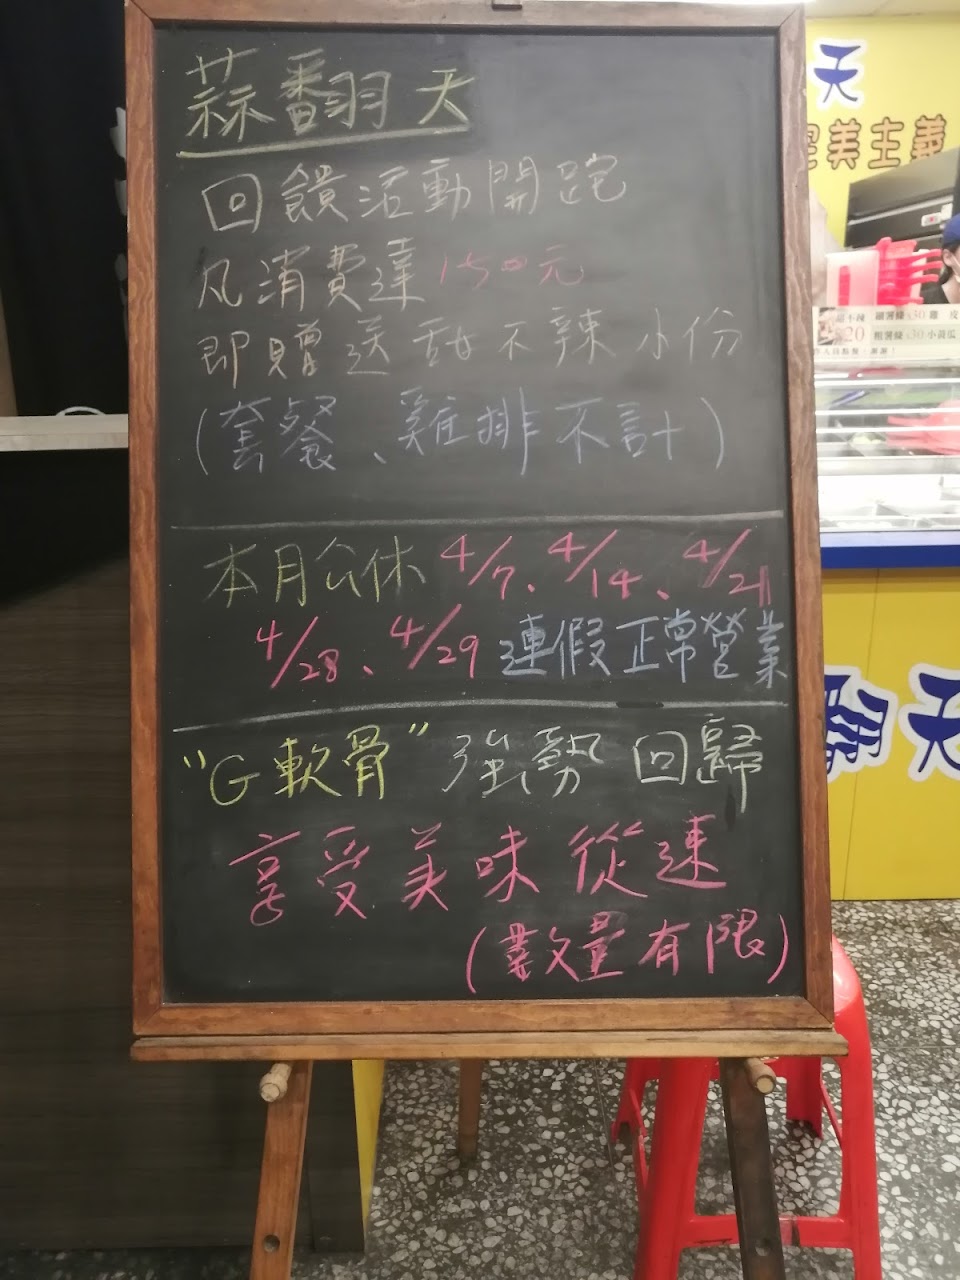 蒜翻天
回饋活動開跑
凡消費達150元
即贈送甜不辣小份
(套餐、雞排不計)
本月公休 4/7、4/14、4/21
4/28、4/29 連假正常營業
"G軟骨" 強勢回歸
享受美味從速
(數量有限)
天
美主義
20
30
30小黃瓜
翻天